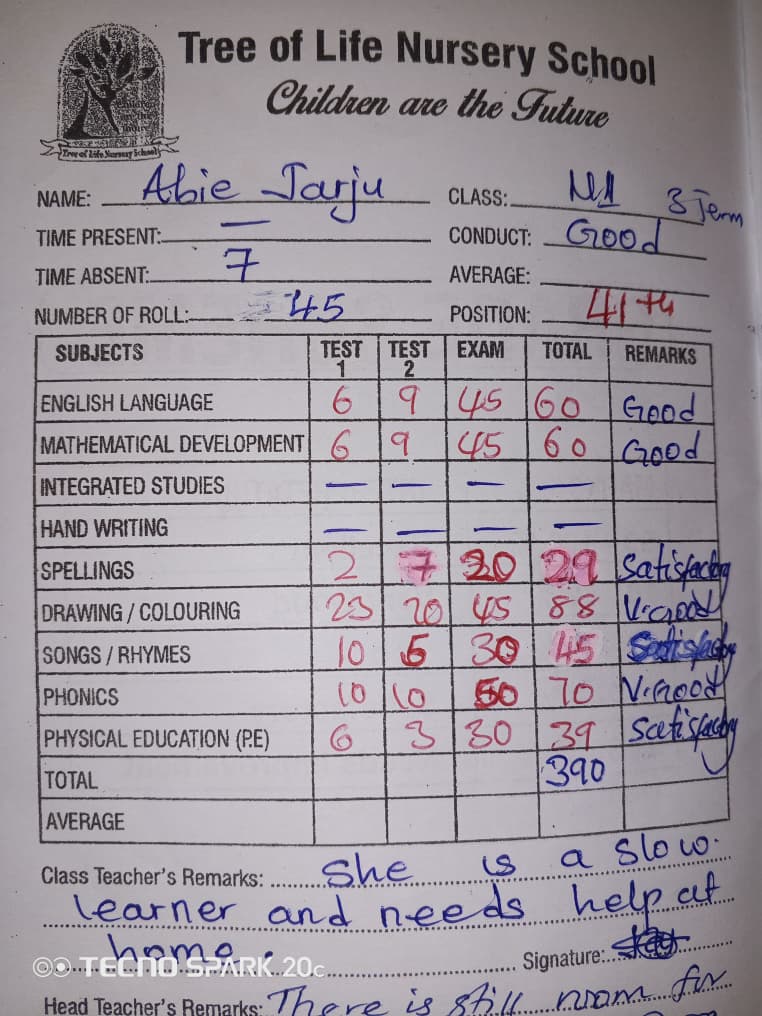 Tree of Life Nursery School
Children are the Future
Tree of Life Nursery School
NAME: Abie Jarju CLASS: N1 3 Term
TIME PRESENT: — CONDUCT: Good
TIME ABSENT: 7 AVERAGE:
NUMBER OF ROLL: 45 POSITION: 41th
SUBJECTS TEST 1 TEST 2 EXAM TOTAL REMARKS
ENGLISH LANGUAGE 6 9 45 60 Good
MATHEMATICAL DEVELOPMENT 6 9 45 60 Good
INTEGRATED STUDIES — — — —
HAND WRITING — — — —
SPELLINGS 2 7 20 29 Satisfactory
DRAWING / COLOURING 23 20 45 88 V.good
SONGS / RHYMES 10 5 30 45 Satisfactory
PHONICS 10 10 50 70 V.Good
PHYSICAL EDUCATION (P.E) 6 3 30 39 Satisfactory
TOTAL 390
AVERAGE
Class Teacher's Remarks: She is a slow
learner and needs help at
home. Signature:
TECNO SPARK 20c
Head Teacher's Remarks: There is still room for